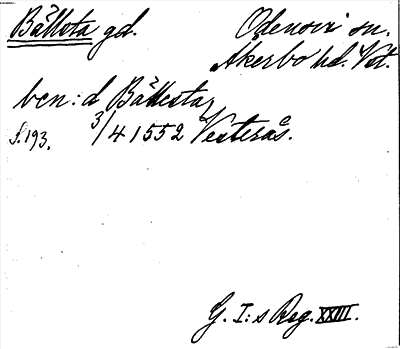 Bällsta gd.
Odensvi sn.
Åkerbo hd. Vst.
ben: d Bällesta,
S. 193. 3/4 1552 Vesterås.
G. I:s Reg. XXIII.